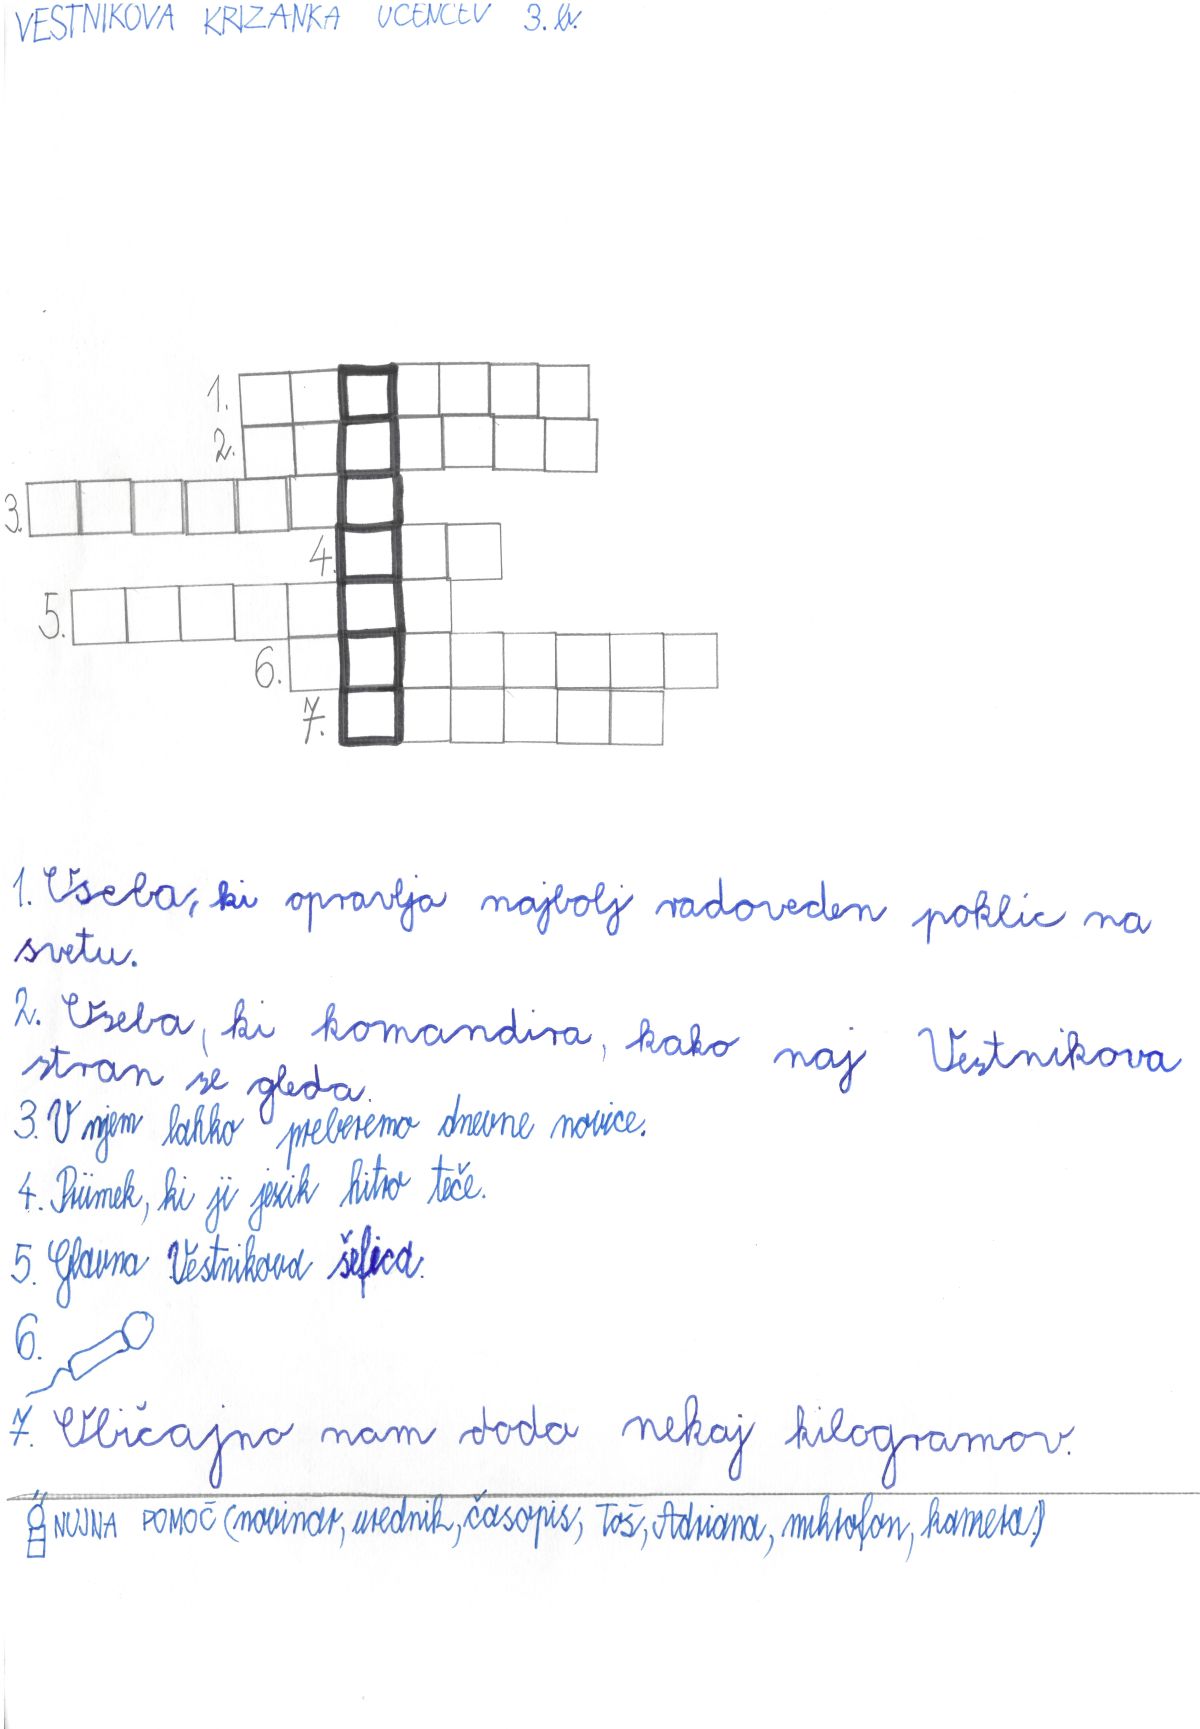 VESTNIKOVA KRIŽANKA UČENCEV 3. b.
1.
2.
3.
4.
5.
6.
7.
1. Oseba, ki opravlja najbolj radoveden poklic na
svetu.
2. Oseba, ki komandira, kako naj Vestnikova
stran se gleda.
3. V njem lahko preberemo dnevne novice.
4. Priimek, ki ji jezik hitro teče.
5. Glavna Vestnikova šefica.
6.
7. Običajno nam doda nekaj kilogramov.
NUJNA POMOČ (novinar, urednik, časopis, Toš, Adriana, mikrofon, kamera)